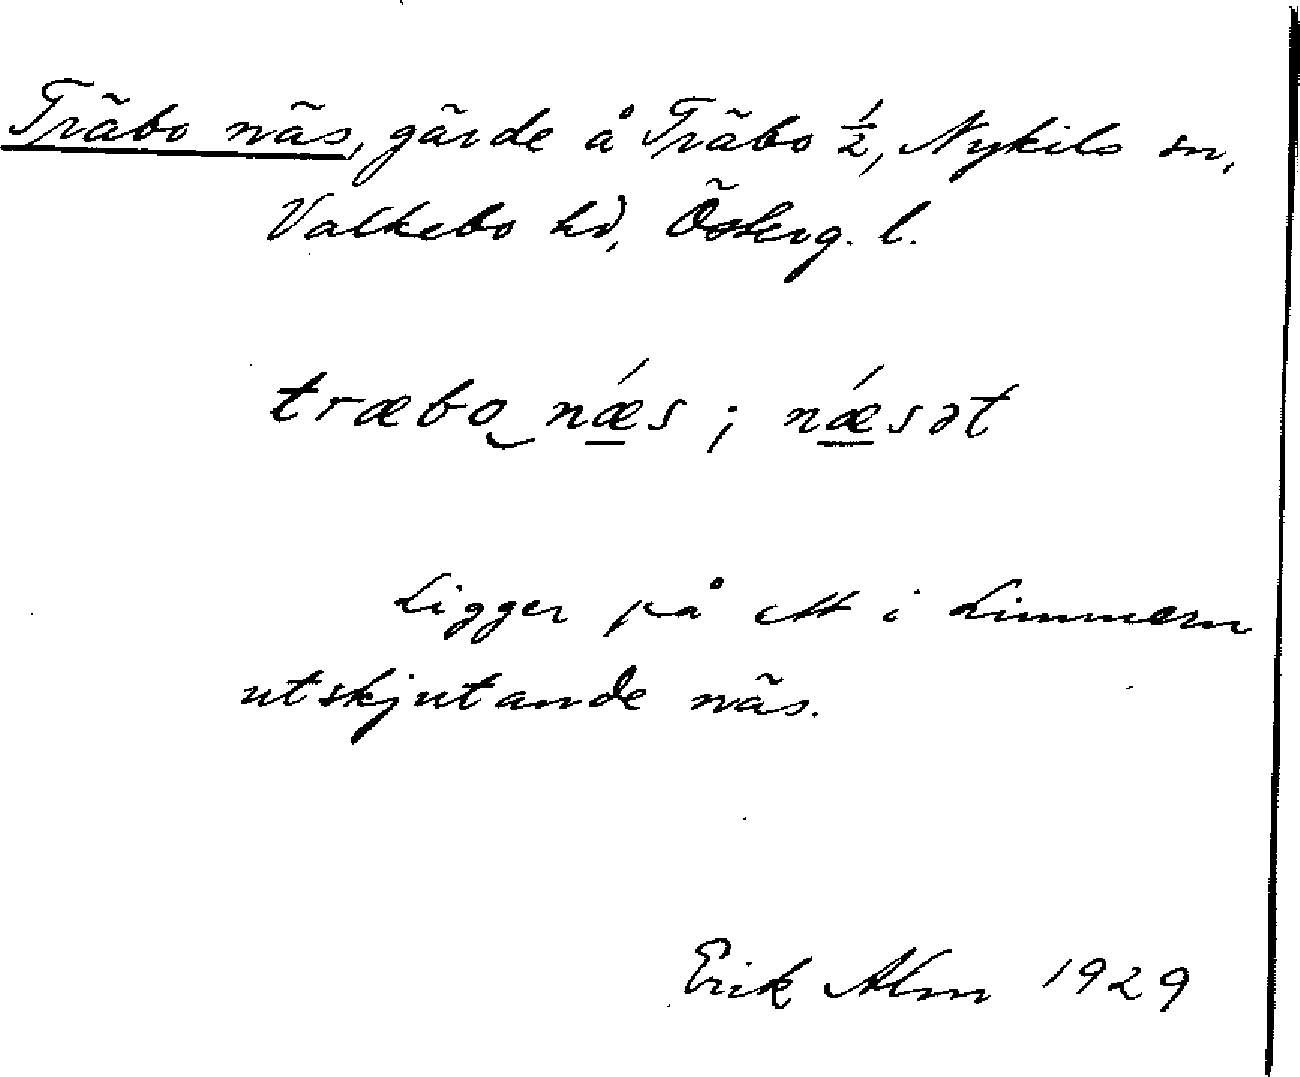 Träbo näs, gärde å Träbo ½, Nykils sn,
Valkebo hd, Österg. l.
træbo‿nǽs ; nǽsət
Ligger på ett i Limmern
utskjutande näs.
Erik Alm 1929